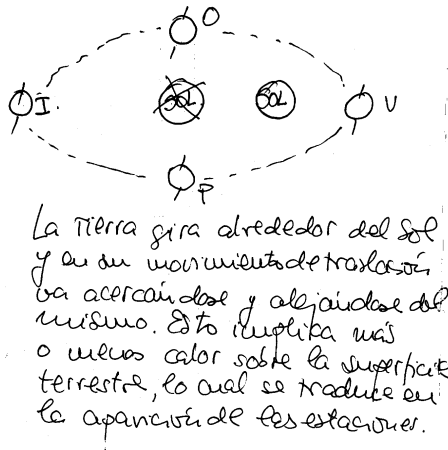 O
I.
SOL
SOL
V
P
La Tierra gira alrededor del Sol
y en su movimiento de traslación
va acercándose y alejándose del
mismo. Esto implica más
o menos calor sobre la superficie
terrestre, lo cual se traduce en
la aparición de las estaciones.